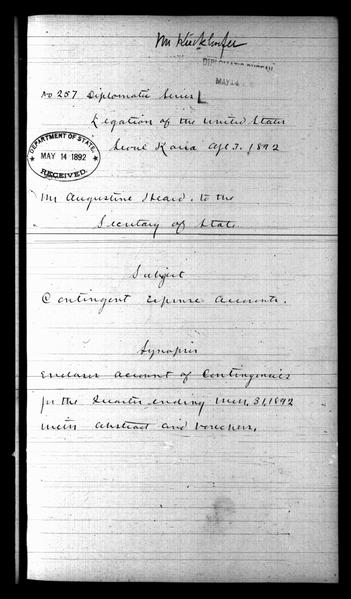 Mr
DIPLOMATIC BUREAU
MAY 14
No 257 Diplomatic Series
Legation of the United States
DEPARTMENT OF STATE,
MAY 14 1892
RECEIVED.
Seoul Korea Apl 3. 1892
Mr Augustine Heard. to the
Secretary of State
Subject
Contingent Expense Accounts.
Synopsis
Encloses Account of Contingencies
for the Quarter ending Mch. 31, 1892
with abstract and vouchers.